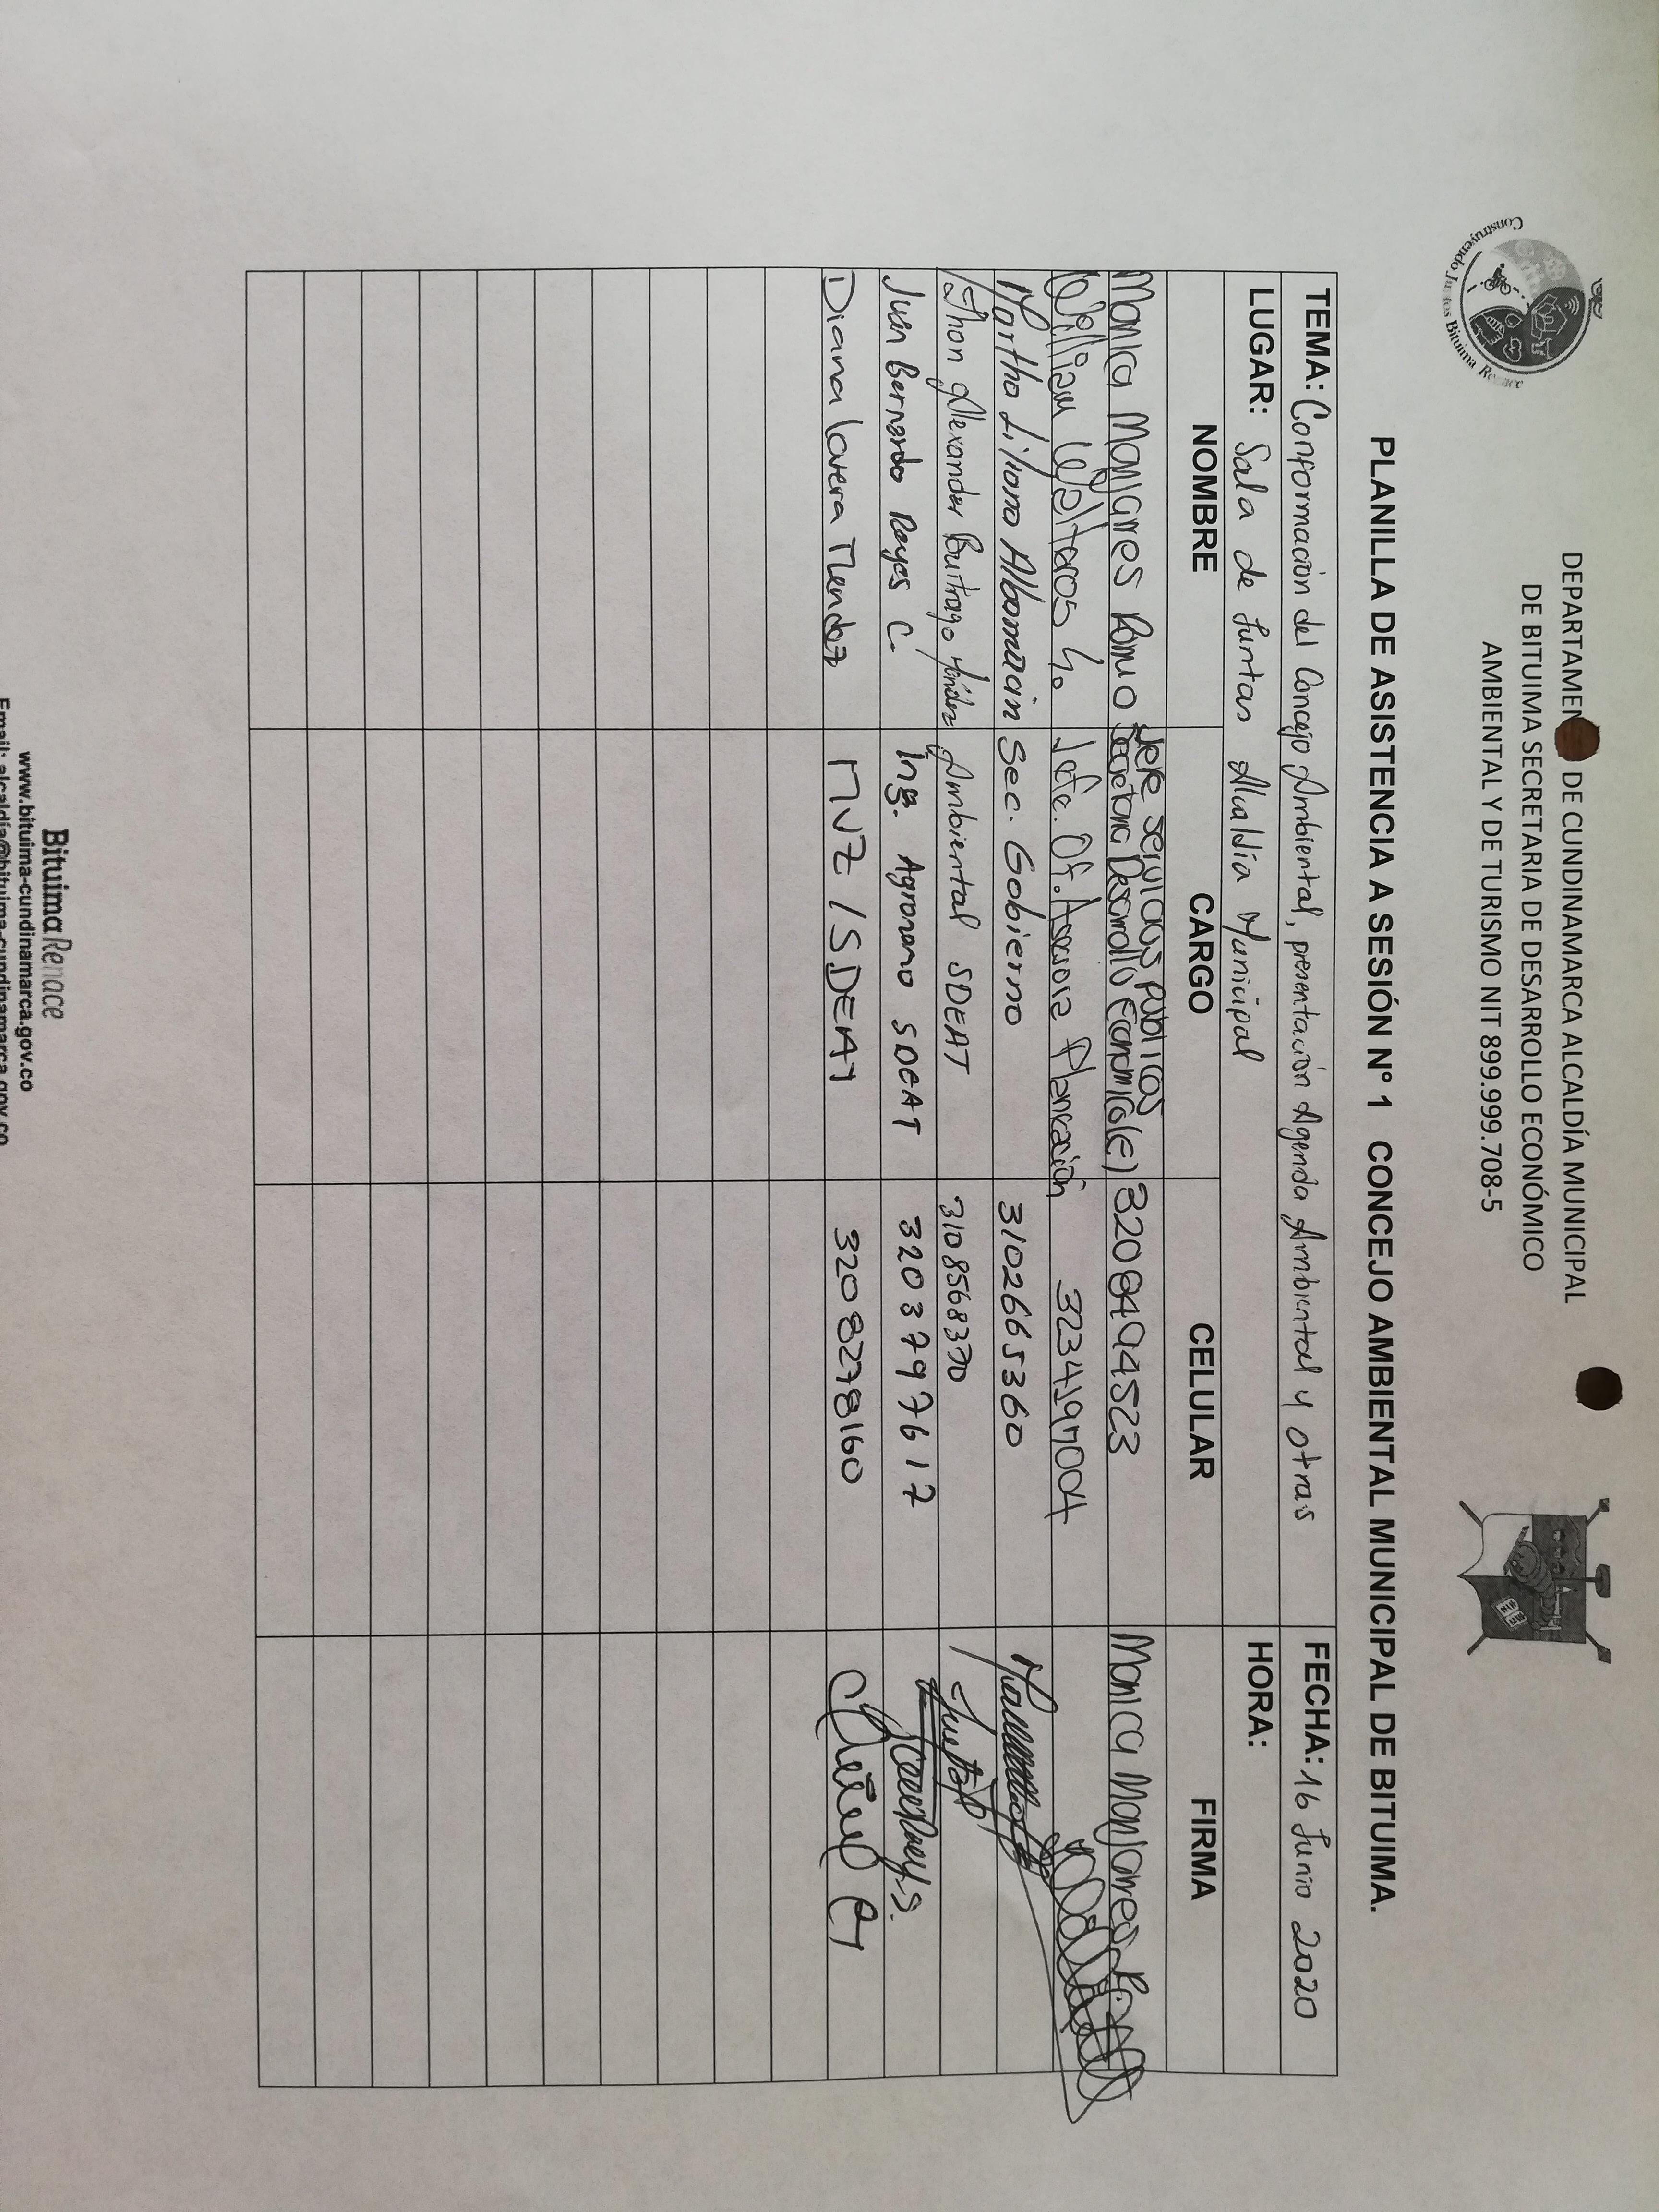 Construyendo Juntos Bituima Renace
DEPARTAMEN DE CUNDINAMARCA ALCALDÍA MUNICIPAL
DE BITUIMA SECRETARIA DE DESARROLLO ECONÓMICO
AMBIENTAL Y DE TURISMO NIT 899.999.708-5
PLANILLA DE ASISTENCIA A SESIÓN N° 1 CONCEJO AMBIENTAL MUNICIPAL DE BITUIMA.
TEMA: Conformación del Concejo Ambiental, presentación Agenda Ambiental y otras FECHA: 16 Junio 2020
LUGAR: Sala de Juntas Alcaldía Municipal HORA:
NOMBRE CARGO CELULAR FIRMA
Jefe servicios publicos
Monica Manjarres Romo Secretaria Desarrollo Economico(e) 3208494523 Monica Manjarres R.
William 4. Jefe. Of. Asesora Planeación 3234197004
Martha Liliana Albarracin Sec. Gobierno 3102665360
Jhon Alexander Buitrago Ambiental SDEAT 3108568370
Juan Bernardo Reyes C. Ing. Agronomo SDEAT 3203797617
Diana Lovera Mendez MVZ / SDEAT 3208278160
Bituima Renace
www.bituima-cundinamarca.gov.co
Email: alcaldia@bituima-cundinamarca.gov.co